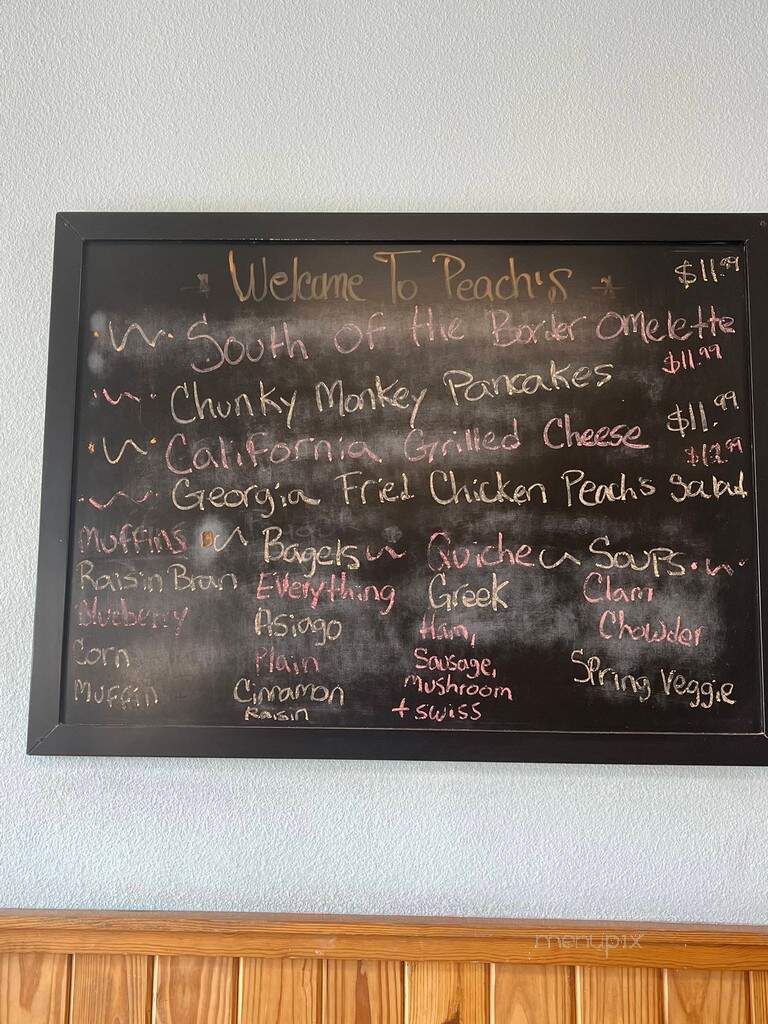 Welcome To Peach's $11.99
South of the Border omelette
$11.99
Chunky Monkey Pancakes
$11.99
California Grilled Cheese
$12.99
Georgia Fried Chicken Peach's Salad
Muffins Bagels Quiche Soups
Raisin Bran Everything Greek Clam
Blueberry Asiago Ham, Chowder
Corn Plain Sausage, Spring Veggie
Muffin Cinnamon Mushroom
Raisin + Swiss
menupix